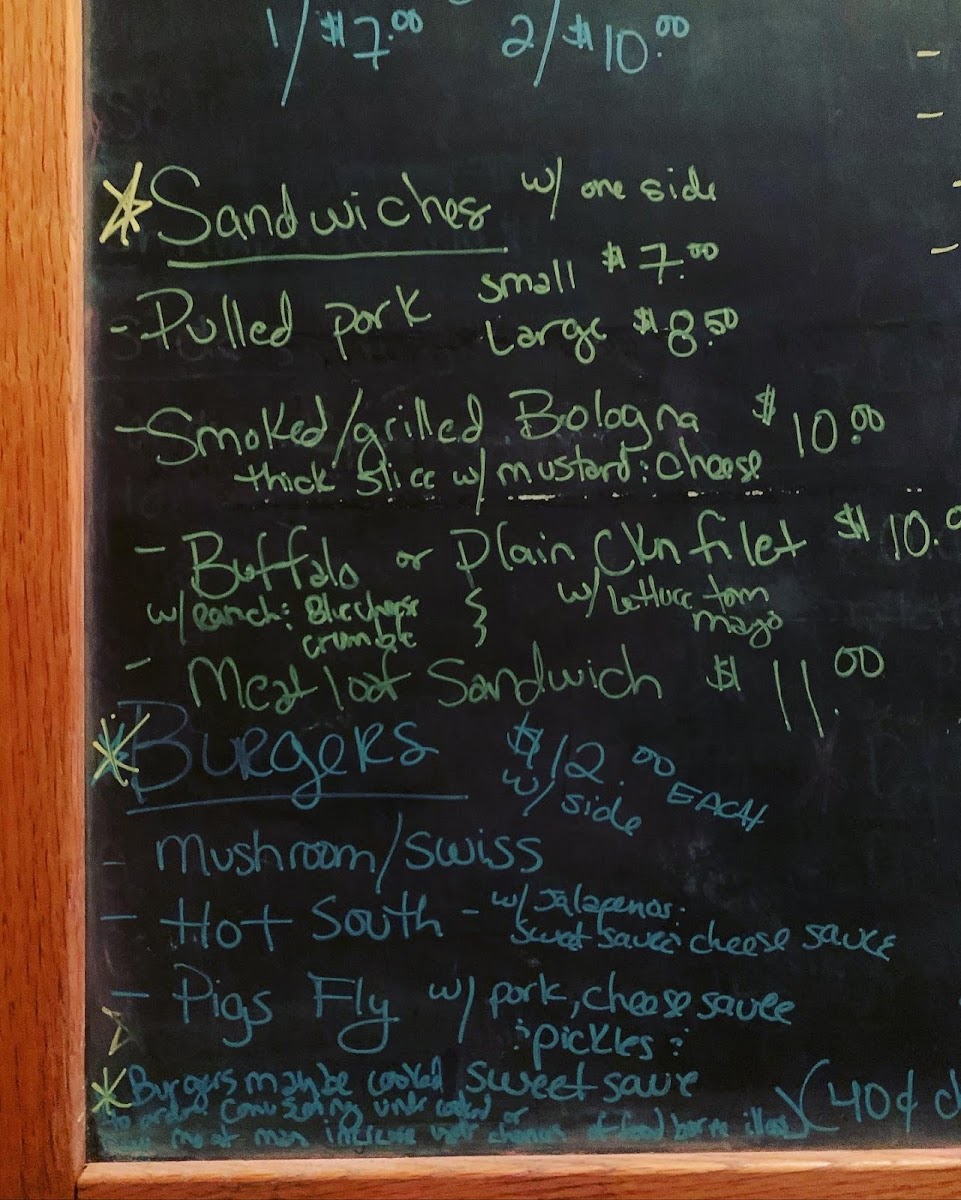 1/$7.00 2/$10.00
* Sandwiches w/ one side
- Pulled pork small $7.00
Large $8.50
- Smoked/grilled Bologna $10.00
thick slice w/ mustard : cheese
- Buffalo or Plain Ckn filet $10.0
w/ ranch : Blue cheese crumble } w/ Lettuce tom mayo
- Meatloaf Sandwich $11.00
* Burgers $12.00 EACH
w/ side
- Mushroom/Swiss
- Hot South - w/ Jalapenos :
sweet sauce : cheese sauce
- Pigs Fly w/ pork, cheese sauce
: pickles :
sweet sauce
* Burgers may be cooked
to order. Consuming under cooked or
meat may increase your chances of food borne illness
(40¢